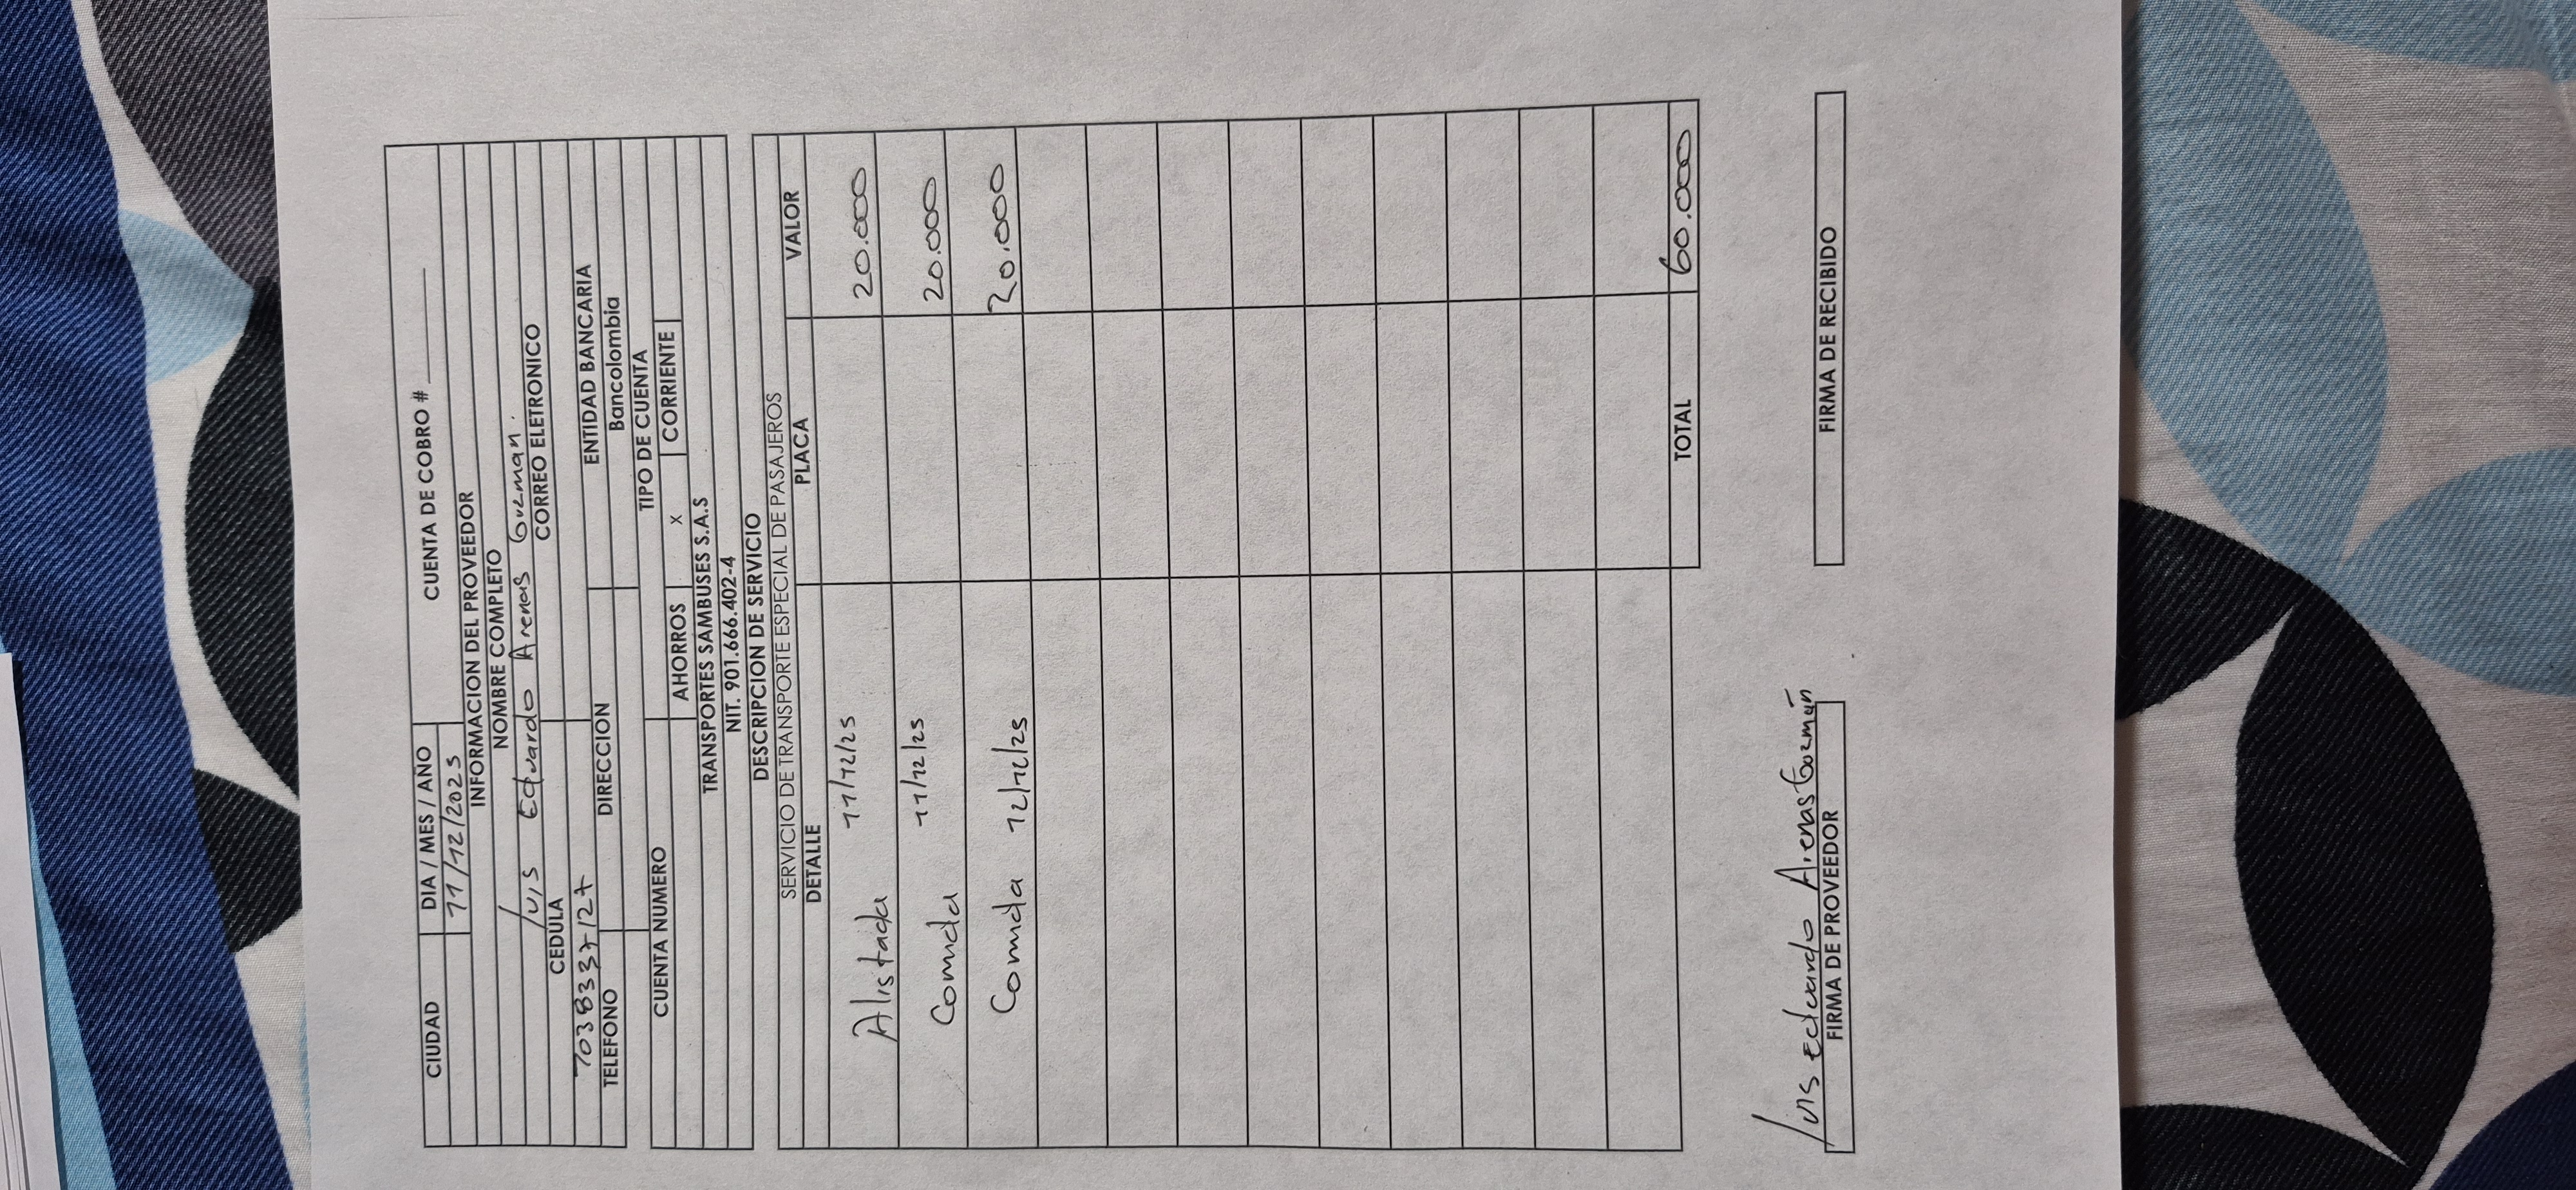 CUENTA DE COBRO # ______
CIUDAD DIA / MES / AÑO
11/12/2025
INFORMACION DEL PROVEEDOR
NOMBRE COMPLETO
Luis Eduardo Arenas Guzman.
CEDULA CORREO ELETRONICO
1038337127
TELEFONO DIRECCION ENTIDAD BANCARIA
Bancolombia
CUENTA NUMERO TIPO DE CUENTA
AHORROS X CORRIENTE
TRANSPORTES SAMBUSES S.A.S
NIT. 901.666.402-4
DESCRIPCION DE SERVICIO
SERVICIO DE TRANSPORTE ESPECIAL DE PASAJEROS
DETALLE PLACA VALOR
Alistada 11/12/25 20.000
Comida 11/12/25 20.000
Comida 12/12/25 20.000
TOTAL 60.000
Luis Eduardo Arenas Guzmán
FIRMA DE PROVEEDOR FIRMA DE RECIBIDO